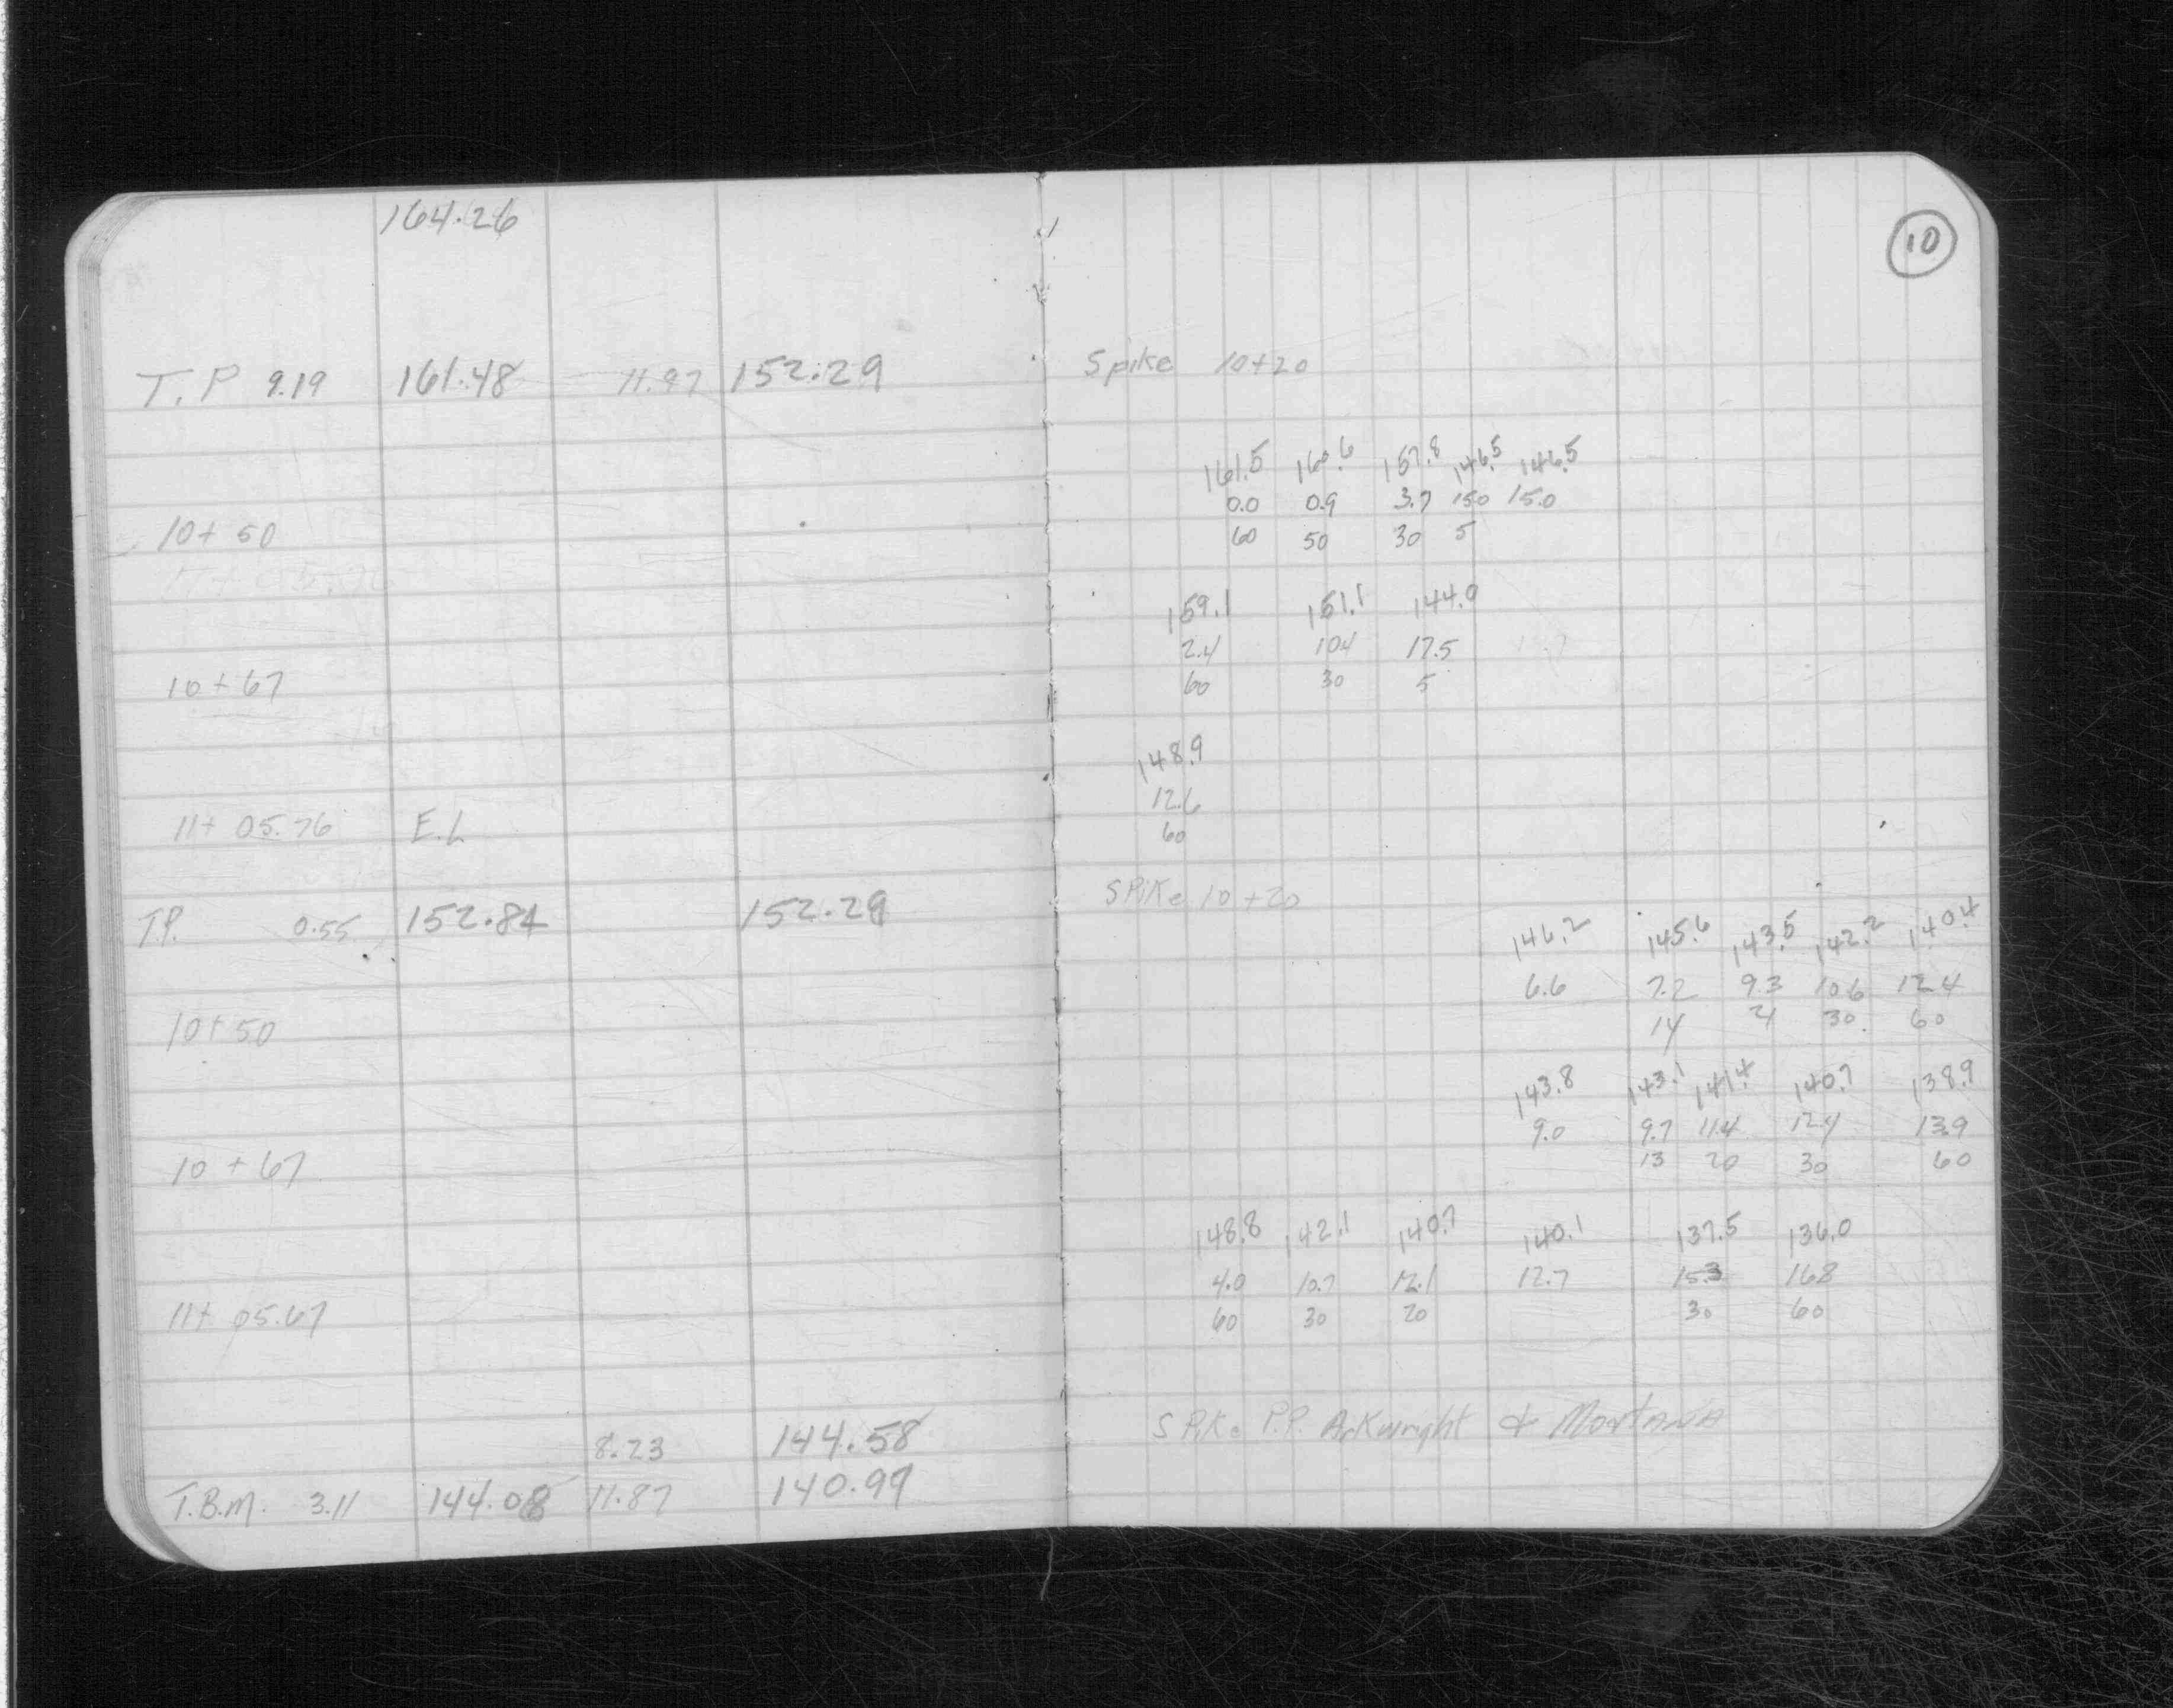 164.26
10
T.P 9.19 161.48 11.97 152.29 Spike 10+20
161.5 160.6 157.8 146.5 146.5
0.0 0.9 3.7 150 15.0
10+50 60 50 30 5
159.1 151.1 144.0
2.4 104 17.5
10+67 60 30 5
148.9
12.6
11+05.76 E.L 60
SPiKe 10+20
T.P. 0.55 152.84 152.29
146.2 145.6 143.5 142.2 140.4
6.6 7.2 9.3 10.6 12.4
10+50 14 21 30 60
143.8 143.1 141.4 140.7 138.9
9.0 9.7 11.4 12.4 13.9
10+67 13 20 30 60
148.8 142.1 140.7 140.1 137.5 136.0
4.0 10.7 12.1 12.7 15.3 168
11+05.67 60 30 20 30 60
8.23 144.58 SPiKe P.P. Arkwright & MontANA
T.B.M. 3.11 144.08 11.87 140.97